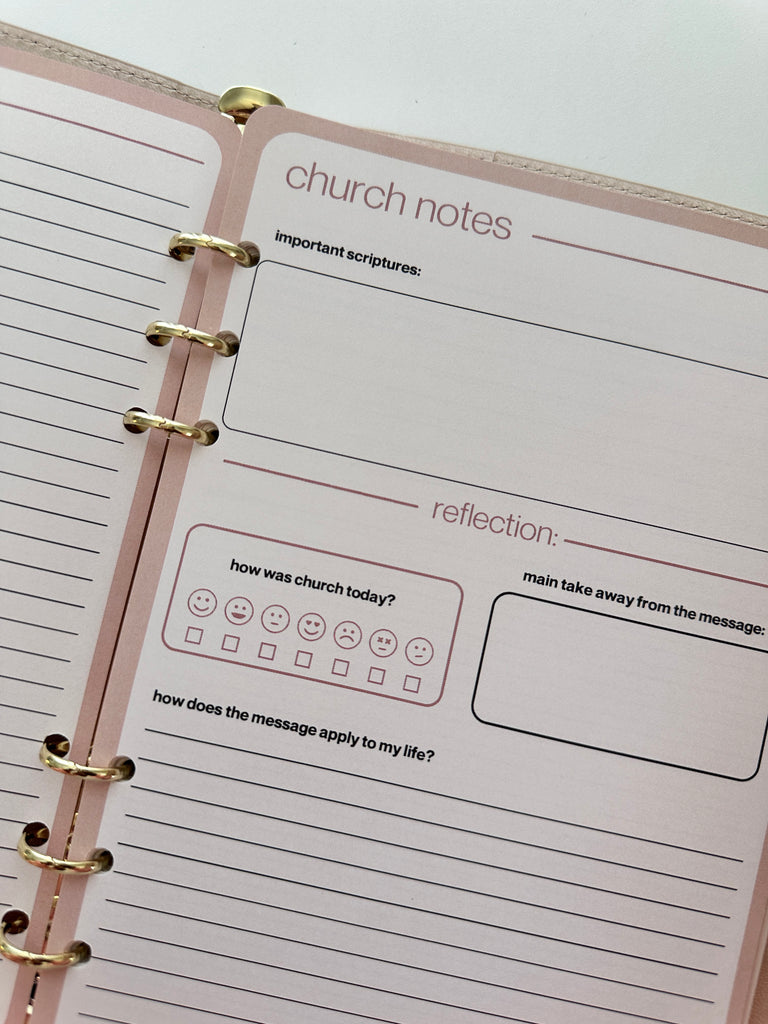 church notes
important scriptures:
reflection:
how was church today?
main take away from the message:
how does the message apply to my life?